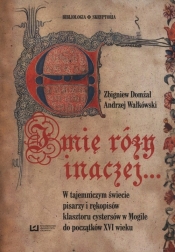 BIBLIOTHECA Φ SKRYPTORZA
Zbigniew Domżał
Andrzej Wałkówski
Imię róży
inaczej...
W tajemniczym świecie
pisarzy i rękopisów
klasztoru cystersów w Mogile
do początków XVI wieku